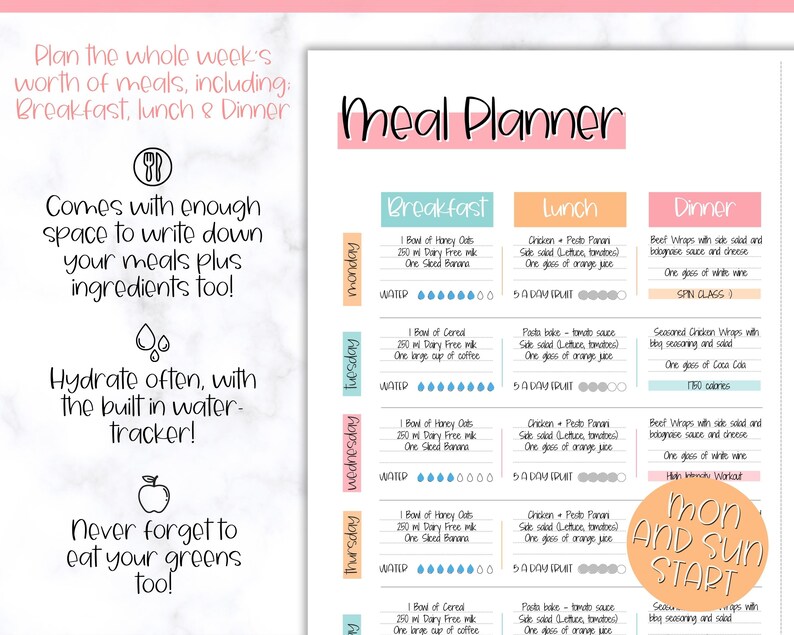 Plan the whole week's
worth of meals, including:
Breakfast, lunch & Dinner
Comes with enough
space to write down
your meals plus
ingredients too!
Hydrate often, with
the built in water-
tracker!
Never forget to
eat your greens
too!
Meal Planner
Breakfast
Lunch
Dinner
monday
1 Bowl of Honey Oats
250 ml Dairy Free milk
One Sliced Banana
WATER
Chicken & Pesto Panani
Side salad (Lettuce, tomatoes)
One glass of orange juice
5 A DAY FRUIT
Beef Wraps with side salad and
bolognaise sauce and cheese
One glass of white wine
SPIN CLASS :)
tuesday
1 Bowl of Cereal
250 ml Dairy Free milk
One large cup of coffee
WATER
Pasta bake - tomato sauce
Side salad (Lettuce, tomatoes)
One glass of orange juice
5 A DAY FRUIT
Seasoned Chicken Wraps with
bbq seasoning and salad
One glass of Coca Cola
1750 calories
wednesday
1 Bowl of Honey Oats
250 ml Dairy Free milk
One Sliced Banana
WATER
Chicken & Pesto Panani
Side salad (Lettuce, tomatoes)
One glass of orange juice
5 A DAY FRUIT
Beef Wraps with side salad and
bolognaise sauce and cheese
One glass of white wine
High Intensity Workout
thursday
1 Bowl of Honey Oats
250 ml Dairy Free milk
One Sliced Banana
WATER
Chicken & Pesto Panani
Side salad (Lettuce, tomatoes)
One glass of orange juice
5 A DAY FRUIT
MON
AND SUN
START
1 Bowl of Cereal
250 ml Dairy Free milk
One large cup of coffee
Pasta bake - tomato sauce
Side salad (Lettuce, tomatoes)
One glass of orange juice
with
bbq seasoning and salad